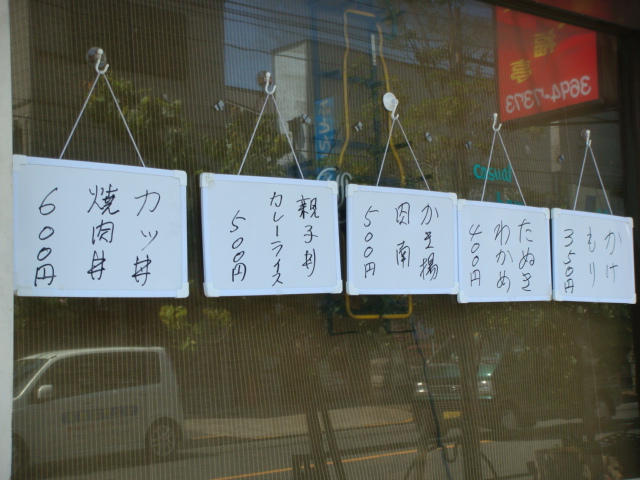 カツ丼
焼肉丼
600円
親子丼
カレーライス
500円
かき揚
肉南
500円
たぬき
わかめ
400円
かけ
もり
350円
casual
福亭
3694-7373